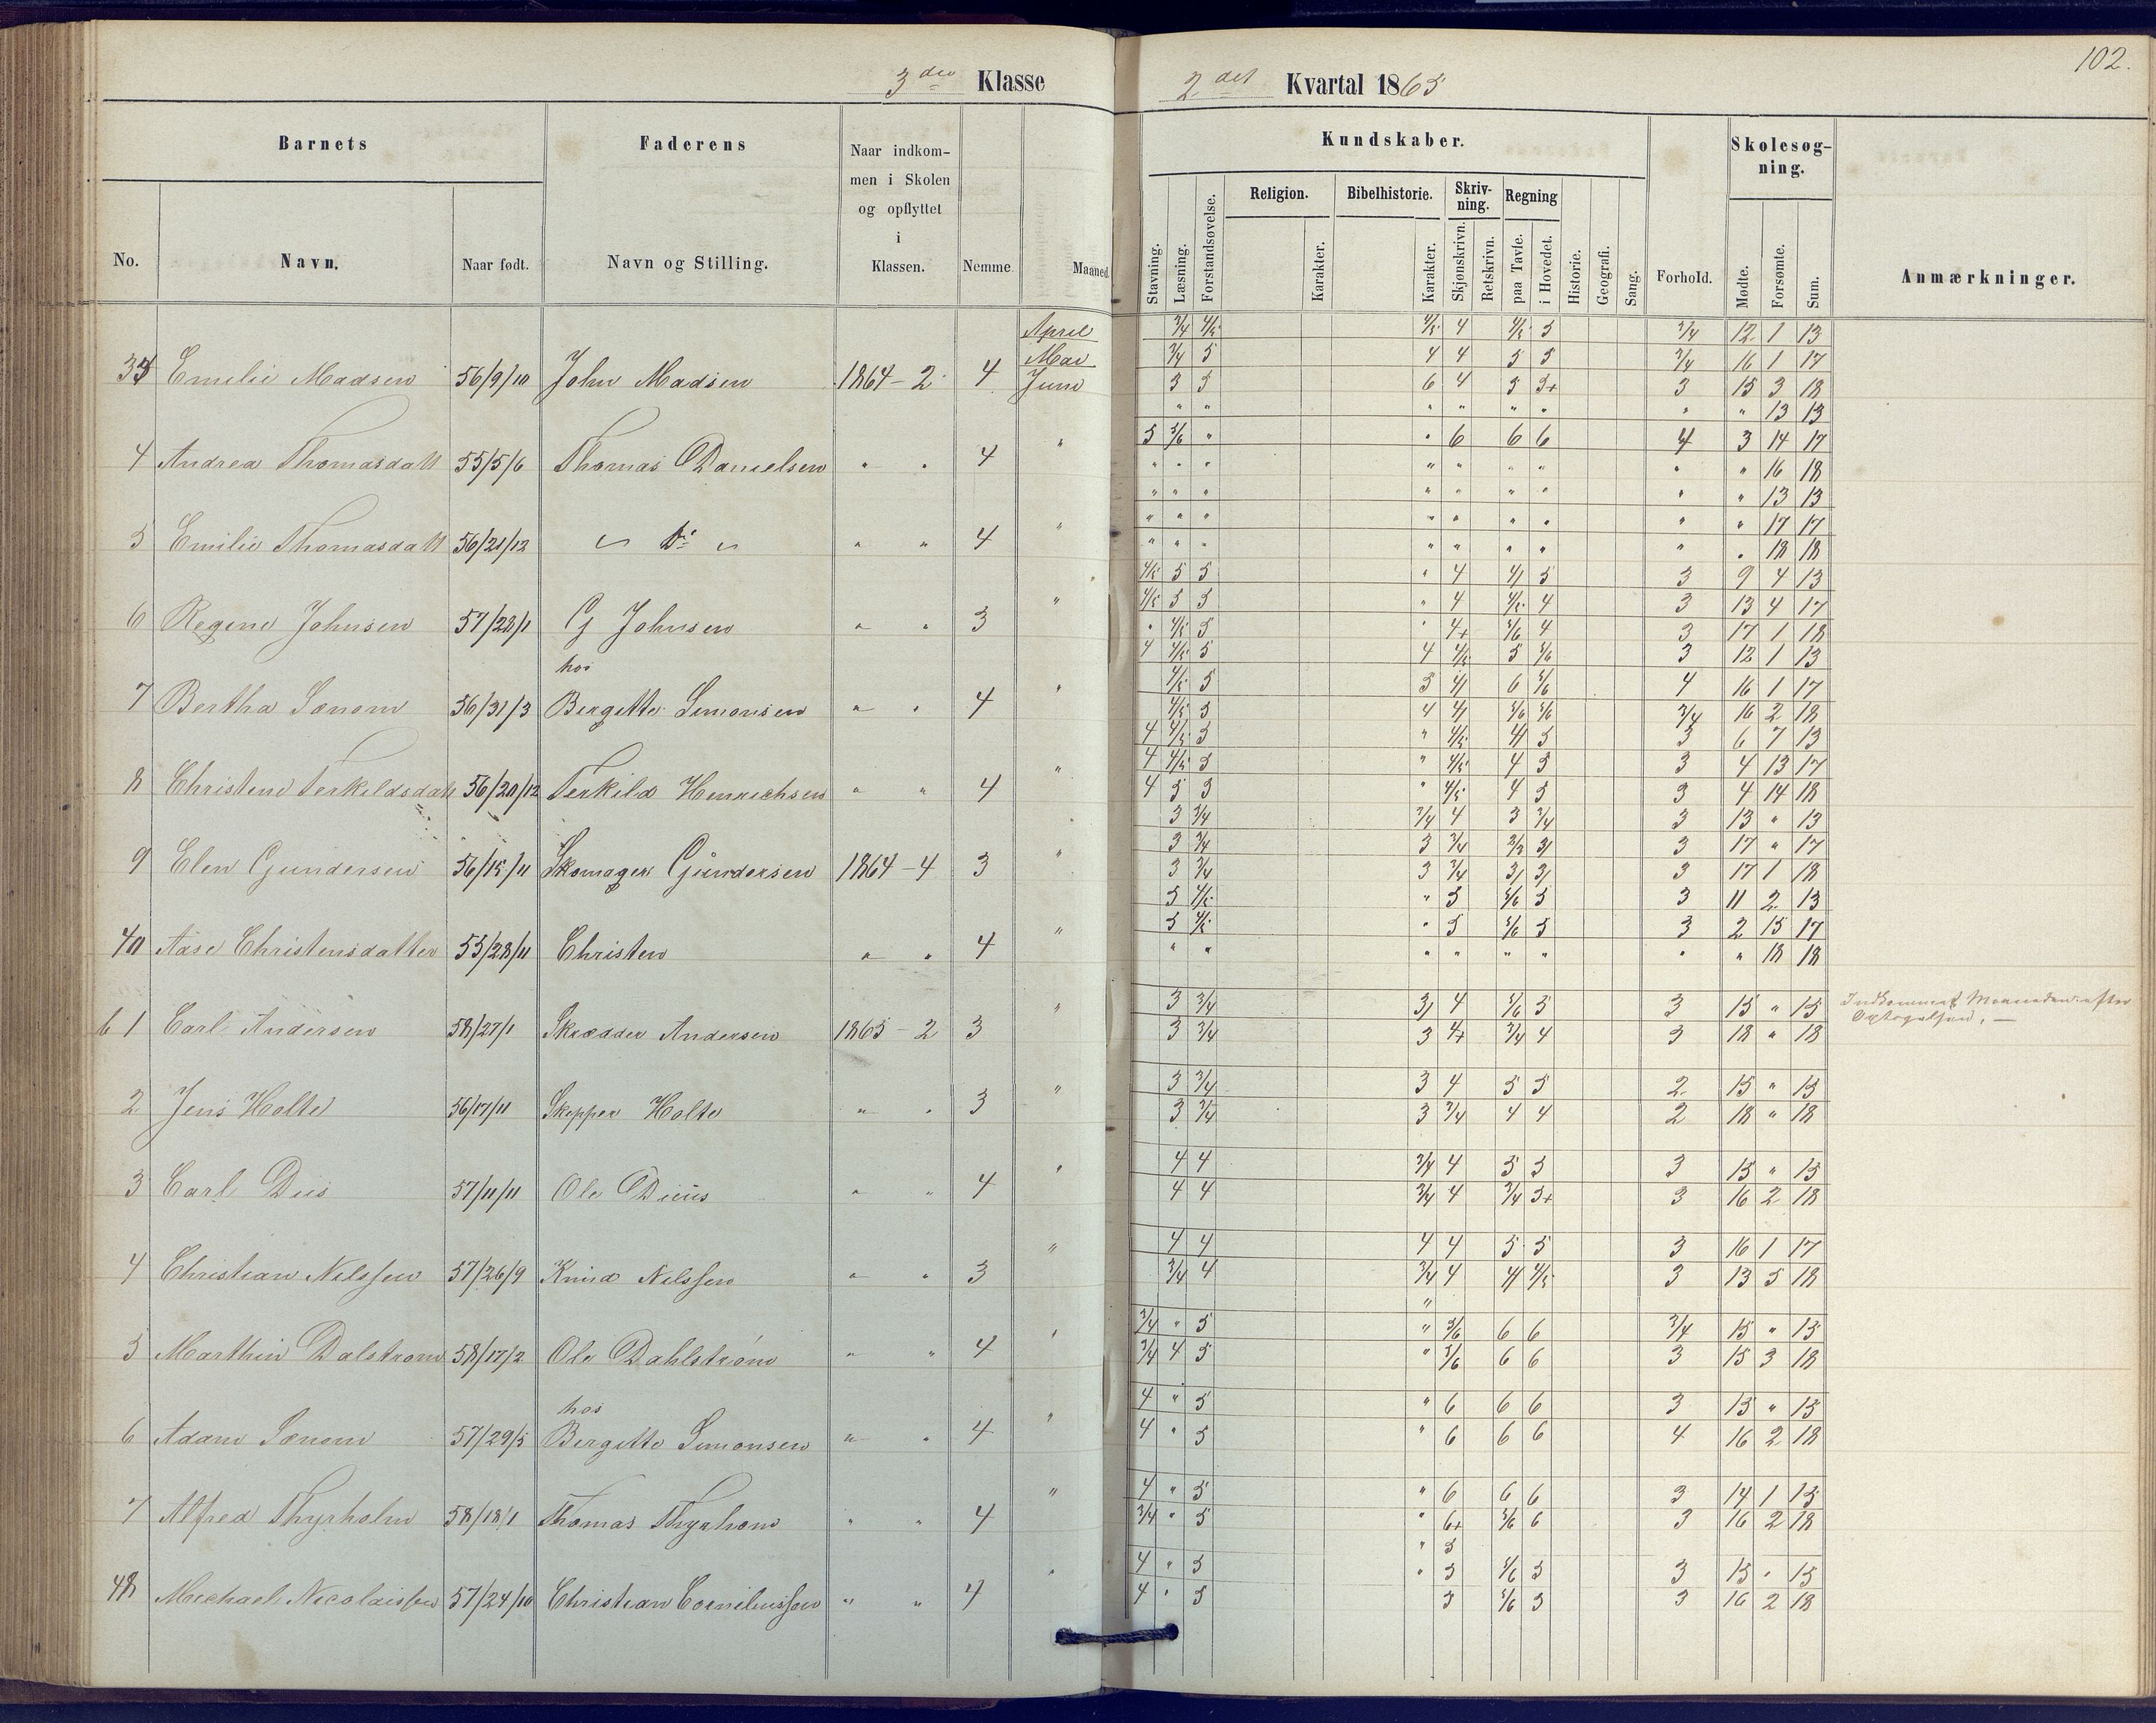 102.
3die Klasse 2det Kvartal 1865
Barnets Faderens Naar indkommen i Skolen og opflyttet i Klassen. Nemme Maaned
No. Navn. Naar født. Navn og Stilling.
Kundskaber. Forhold. Skolesøgning. Anmærkninger.
Stavning. Læsning. Forstandsøvelse. Religion. Karakter. Bibelhistorie. Karakter. Skrivning. Skjønskrivn. Retskrivn. Regning paa Tavle. i Hovedet. Historie. Geografi. Sang. Mødte. Forsømte. Sum.
April 3/4 4/5 4/5 4 4/5 5 3/4 12 1 13
Mai 3/4 5 4 4 5 5 3/4 16 1 17
33 Emilie Madsen 56/9/10 John Madsen 1864 - 2 4 Juni 5 5 6 4 5 5+ 3 15 3 18
" " " " " " " " 13 13
5 5/6 " " 6 6 6 4 3 14 17
4 Andrea Thomasdatt 55/5/6 Thomas Danielsen " " 4 " " " " " " " " " " 16 18
" " " " " " " " " 13 13
" " " " " " " " " 17 17
5 Emilie Thomasdatt 56/21/12 " do " " " 4 " " " " " " " " " " 18 18
4/5 5 5 " 4 4/ 5 3 9 4 13
4/5 5 5 " 4 4/5 4 3 13 4 17
6 Regine Johnsen 57/28/1 G Johnsen " " 3 " " 4/5 5 " 4+ 5/6 4 3 17 1 18
4 4/5 5 4 4/5 5 5/6 3 12 1 13
hos
4/5 5 5 4/ 6 5/6 4 16 1 17
7 Bertha Sonom 56/31/3 Bergitte Simonsen " " 4 " 4/5 5 4 4/ 5/6 5/6 3/4 16 2 18
4 4/5 5 " 4/5 4/ 5 3 6 7 13
4 4/5 5 " 4/5 4 5 3 4 13 17
8 Christine Terkildsdatt 56/20/12 Terkild Henrichsen " " 4 " 4 5 5 " 4/5 4 5 3 4 14 18
3 3/4 3/4 4 3 3/4 3 13 " 13
3 3/4 3 3/4 2/3 3/ 3 17 " 17
9 Elen Gundersen 56/15/11 Skomager Gundersen 1864 - 4 3 " 3 3/4 3 3/4 3/ 3/ 3 17 1 18
5 4/5 " 5 5/6 5 3 11 2 13
5 4/5 " 5 5/6 5 3 2 15 17
40 Aase Christensdatter 55/28/11 Christen " " 4 " " " " " " " " " 18 18
3 3/4 3/ 4 5/6 5 3 15 " 15
1 Carl Andersen 58/27/1 Skrædder Andersen 1865 - 2 3 " 3 3/4 3 4+ 3/4 4 3 18 " 18
3 3/4 3 4 5 5 2 15 " 15
2 Jens Holte 56/17/11 Skipper Holte " " 3 " 3 3/4 3 3/4 4 4 2 18 " 18
4 4 3/4 4 5 5 3 15 " 15
3 Carl Diis 57/11/11 Ole Diis " " 4 " 4 4 3/4 4 3/4 5+ 3 16 2 18
4 4 4 4 5 5 3 16 1 17
4 Christian Nilssen 57/26/9 Knud Nilssen " " 3 " 3/4 4 3/4 4 4/ 4/5 3 13 5 18
"
3/4 " 5 " 5/6 6 6 3/4 15 " 15
5 Marthin Dalstrom 58/17/2 Ole Dahlstrøm " " 4 " 3/4 4 5 " 5/6 6 6 3 15 3 18
hos
4 " 5 " 6 6 6 3 15 " 15
6 Adam Sonom 57/29/5 Bergitte Simonsen " " 4 " 4 " 5 " 6 6 6 4 16 2 18
4 " 5 " 6 6 6 3 14 1 15
7 Alfred Thyrholm 58/18/1 Thomas " " 4 " 3/4 " 5 " 6+ 5/6 6 3 16 2 18
" 5
4 " 5 " 5 5/6 5 3 15 " 15
48 Michael Nicolaissen 57/24/10 Christian Corneliussen " " 4 " 4 " 5 5 5/6 5 3 16 2 18